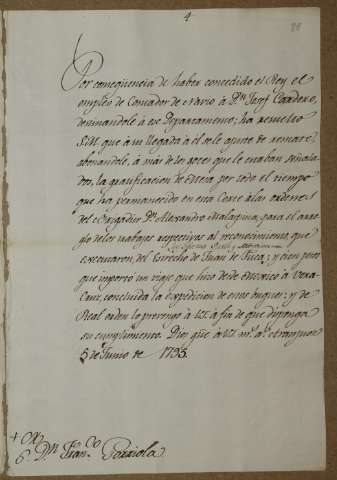 4
Por conseqüencia de haber concedido el Rey el
empleo de Contador de Navio à Dn. Josef Cardero,
destinandole à ese Departamento; ha resuelto
S.M. que à su llegada à él se le ajuste de remate,
abonandole, à más de los goces que le estaban señala-
dos, la gratificacion de Mesa por todo el tiempo
que ha permanecido en esta Corte à las ordenes
del Brigadier Dn. Alexandro Malaspina, para el arre-
glo de los trabajos respectivos al reconocimiento, que
con las Goletas Sutil y Mexicana
executaron, del Estrecho de Juan de Fuca; y cien pesos
que importó un viage que hizo desde Mexico à Vera-
Cruz, concluida la expedicion de esos buques: y de
Real orden lo prevengo à V.E. à fin de que disponga
su cumplimiento. Dios gue. à V.E. ms. as. Aranjuez
5 de Junio de 1795.
Sr. Dn. Franco. Gorziola